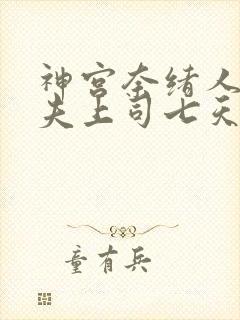 神宫奈绪人
夫上司七天
童有兵